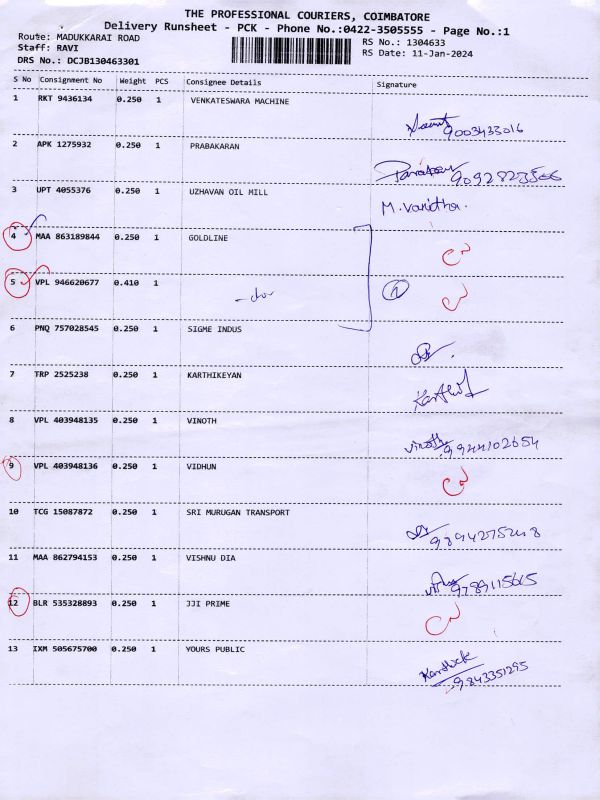 THE PROFESSIONAL COURIERS, COIMBATORE
Delivery Runsheet - PCK - Phone No.:0422-3505555 - Page No.:1
Route: MADUKKARAI ROAD
RS No.: 1304633
Staff: RAVI
RS Date: 11-Jan-2024
DRS No.: DCJB130463301
S No Consignment No Weight PCS Consignee Details Signature
1 RKT 9436134 0.250 1 VENKATESWARA MACHINE
9003433016
2 APK 1275932 0.250 1 PRABAKARAN
9092823566
3 UPT 4055376 0.250 1 UZHAVAN OIL MILL
M. Vanitha.
4 MAA 863189844 0.250 1 GOLDLINE
5 VPL 946620677 0.410 1
-do-
6 PNQ 757028545 0.250 1 SIGME INDUS
7 TRP 2525238 0.250 1 KARTHIKEYAN
8 VPL 403948135 0.250 1 VINOTH
Vinoth 9944102654
9 VPL 403948136 0.250 1 VIDHUN
10 TCG 15087872 0.250 1 SRI MURUGAN TRANSPORT
11 MAA 862794153 0.250 1 VISHNU DIA
9789115615
12 BLR 535328893 0.250 1 JJI PRIME
13 IXM 505675700 0.250 1 YOURS PUBLIC
Karthick
9843351295